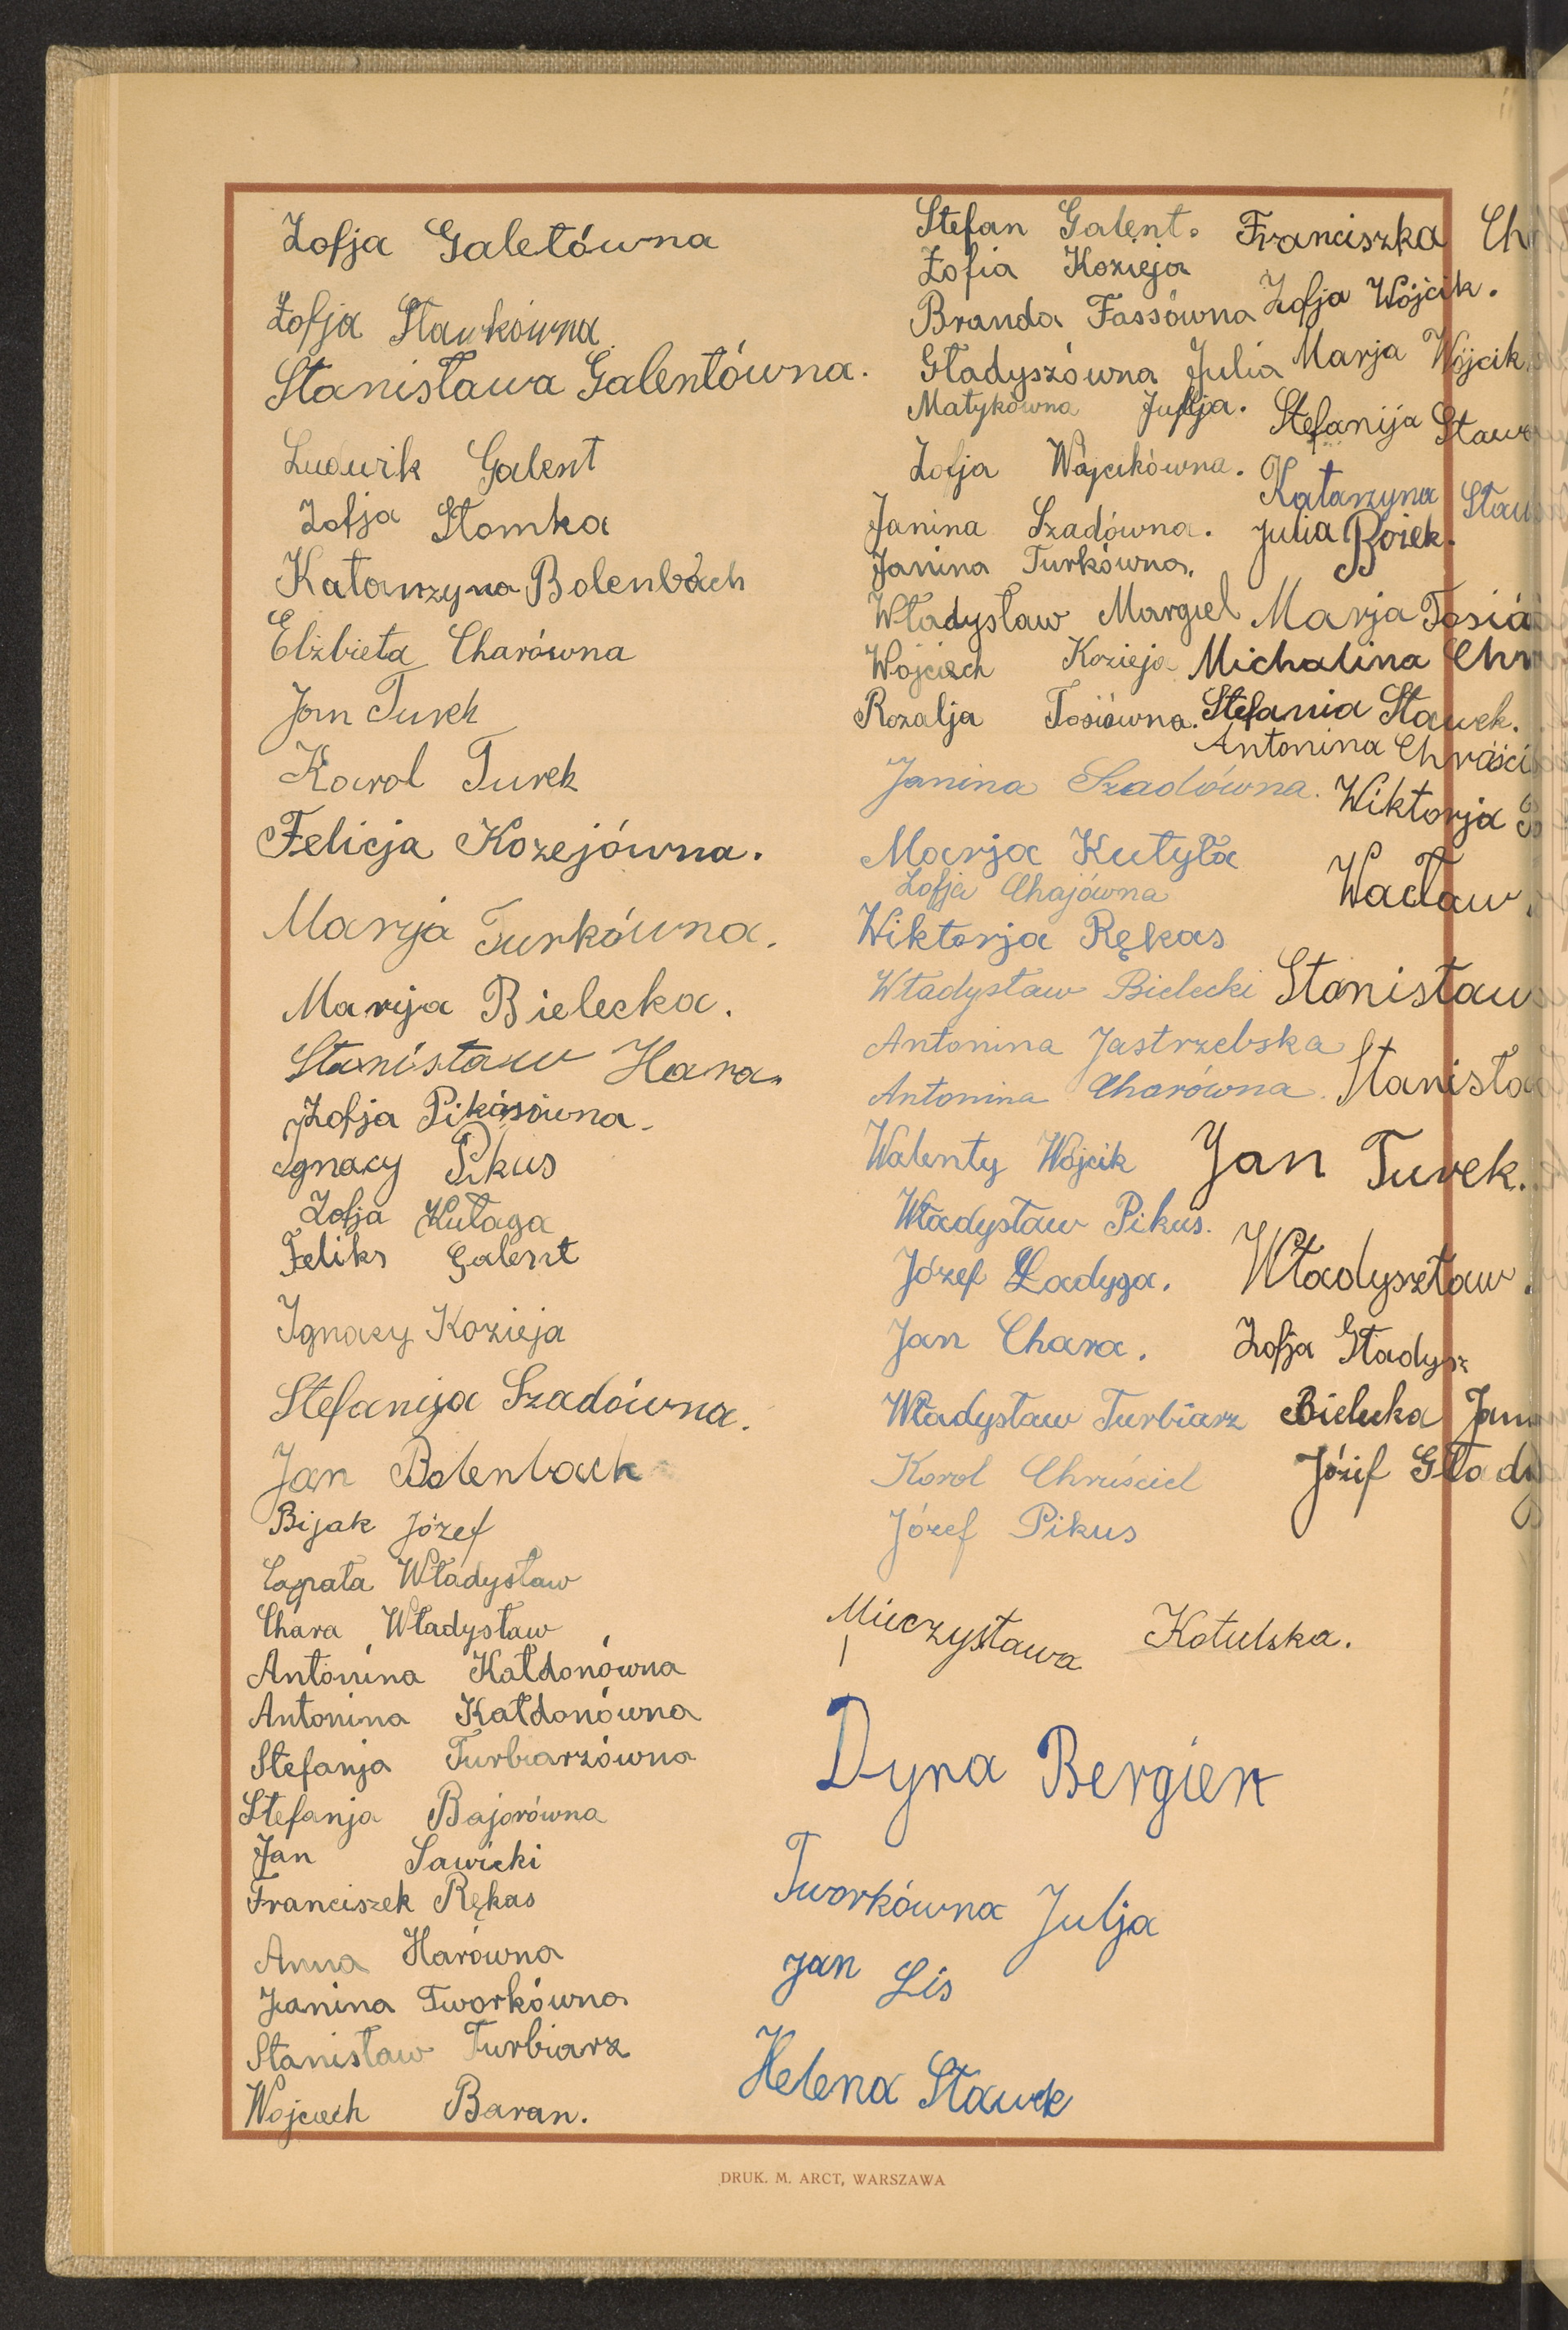 Zofja Galetówna
Zofja Stawkówna
Stanisława Galentówna.
Ludwik Galent
Zofja Słomka
Katarzyna Bolenbach
Elżbieta Charówna
Jan Turek
Karol Turek
Felicja Kozejówna.
Marja Turkówna.
Marja Bielecka.
Stanisław Hara.
Zofja Pikusówna.
Ignacy Pikus
Zofja Kułaga
Feliks Galent
Ignacy Kozieja
Stefanija Szadówna.
Jan Bolenbach
Bijak Józef
Łapata Władysław
Chara Władysław
Antonina Kałdonówna
Antonina Kałdonówna
Stefanja Turbiarzówna
Stefanja Bajorówna
Jan Sawicki
Franciszek Rękas
Anna Harówna
Janina Tworkówna
Stanisław Turbiarz
Wojciech Baran.
Stefan Galent.
Zofia Kozieja
Branda Fassówna
Gładyszówna Julia
Matykówna Julja.
Zofja Wójcikówna.
Janina Szadówna.
Janina Turkówna.
Władysław Margiel
Wojciech Kozieja
Rozalja Tosiówna.
Janina Szadówna.
Marja Kutyła
Zofja Chajówna
Wiktorja Rękas
Władysław Bielecki
Antonina Jastrzebska
Antonina Charówna.
Walenty Wójcik
Władysław Pikus.
Józef Ładyga.
Jan Chara.
Władysław Turbiarz
Karol Chruściel
Józef Pikus
Mieczysława Kotulska.
Dyna Bergier
Tworkówna Julja
Jan Lis
Helena Stawek
Franciszka
Zofja Wójcik.
Marja Wójcik
Stefanija
Katarzyna
Julia Bożek.
Marja
Michalina
Stefania Stawek.
Antonina
Wiktorja
Wacław
Jan Turek.
Władyszław
Zofja Gładysz
Bielecka
Józef
DRUK. M. ARCT, WARSZAWA